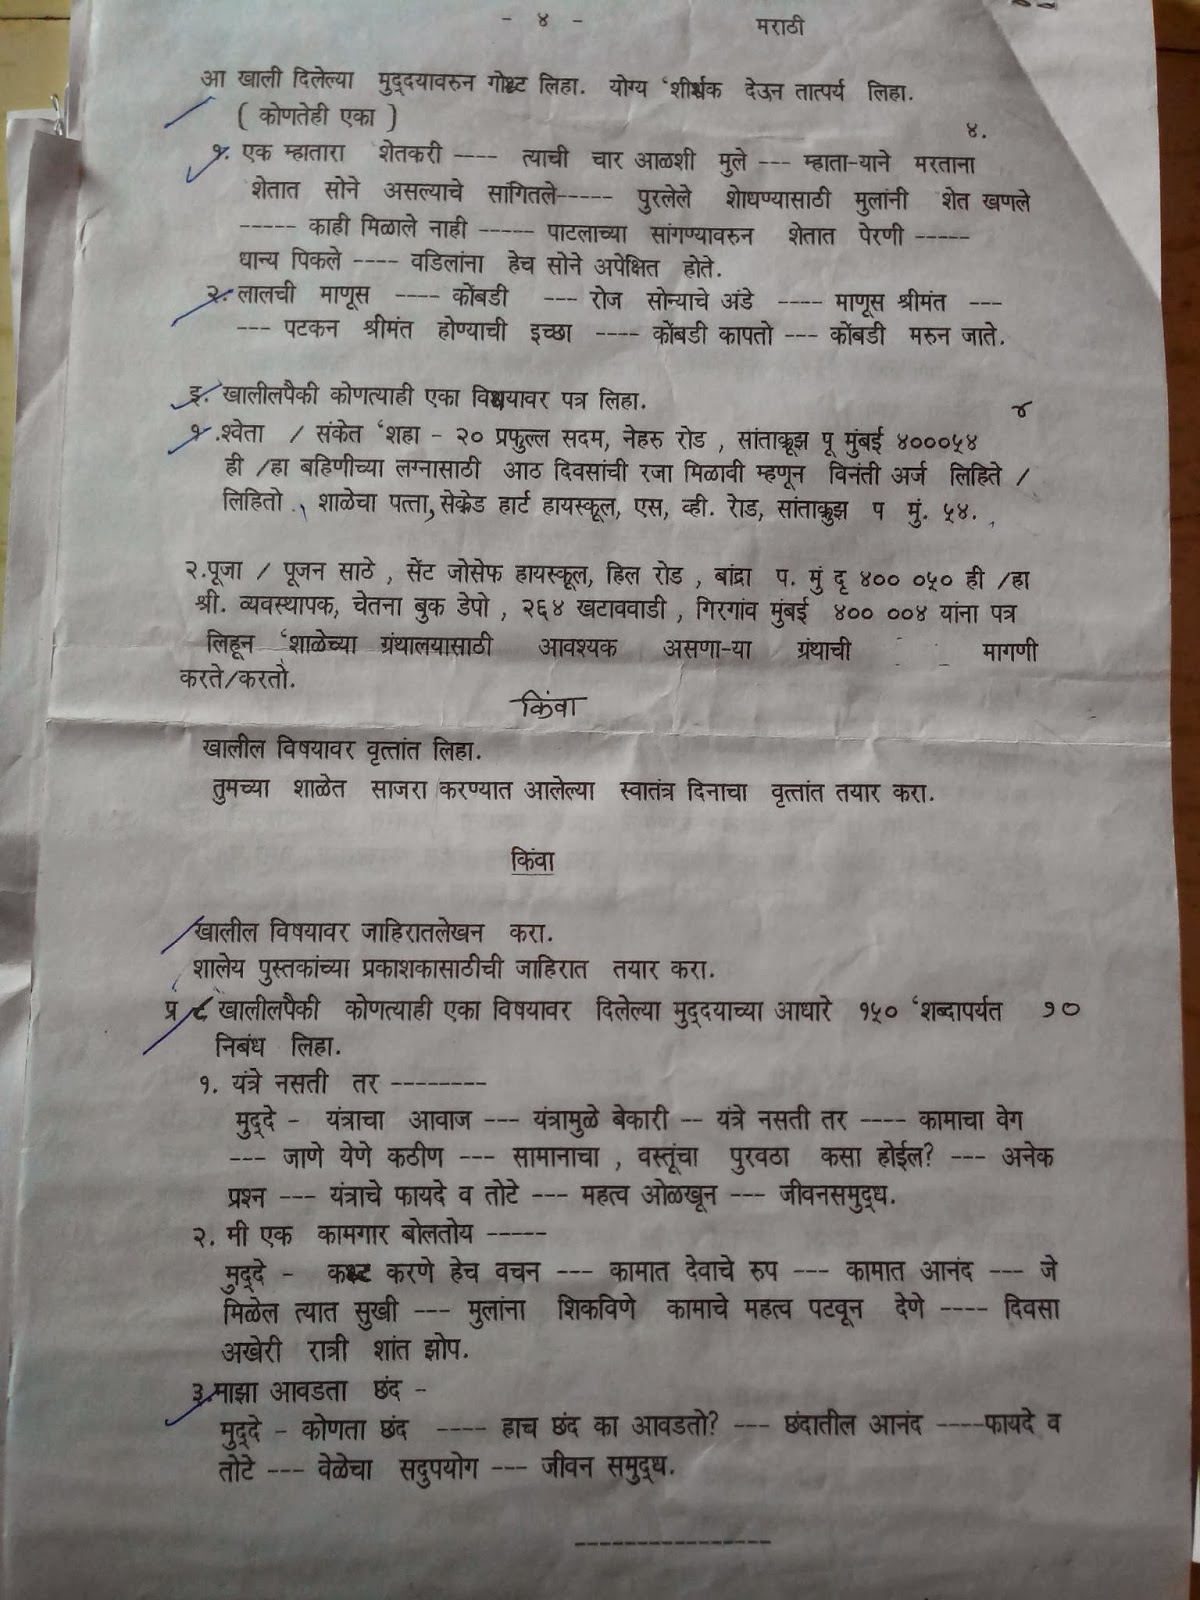 - ४ -
मराठी
आ खाली दिलेल्या मुद्‌दयावरुन गोष्ट लिहा. योग्य ‘शीर्षक देउन तात्पर्य लिहा.
( कोणतेही एका )
४.
१. एक म्हातारा शेतकरी ---- त्याची चार आळशी मुले --- म्हाता-याने मरताना
शेतात सोने असल्याचे सांगितले----- पुरलेले शोधण्यासाठी मुलांनी शेत खणले
----- काही मिळाले नाही ----- पाटलाच्या सांगण्यावरुन शेतात पेरणी -----
धान्य पिकले ---- वडिलांना हेच सोने अपेक्षित होते.
२. लालची माणूस ---- कोंबडी --- रोज सोन्याचे अंडे ---- माणूस श्रीमंत ---
--- पटकन श्रीमंत होण्याची इच्छा ---- कोंबडी कापतो --- कोंबडी मरुन जाते.
इ. खालीलपैकी कोणत्याही एका विषयावर पत्र लिहा.
४
१.श्वेता / संकेत ‘शहा - २० प्रफुल्ल सदम, नेहरु रोड , सांताक्रूझ पू मुंबई ४०००५४
ही /हा बहिणीच्या लग्नासाठी आठ दिवसांची रजा मिळावी म्हणून विनंती अर्ज लिहिते /
लिहितो . शाळेचा पत्ता, सेक्रेड हार्ट हायस्कूल, एस, व्ही. रोड, सांताक्रुझ प मुं. ५४.
२.पूजा / पूजन साठे , सेंट जोसेफ हायस्कूल, हिल रोड , बांद्रा प. मुं दृ ४०० ०५० ही /हा
श्री. व्यवस्थापक, चेतना बुक डेपो , २६४ खटाववाडी , गिरगांव मुंबई ४०० ००४ यांना पत्र
लिहून ‘शाळेच्या ग्रंथालयासाठी आवश्यक असणा-या ग्रंथाची मागणी
करते/करतो.
किंवा
खालील विषयावर वृत्तांत लिहा.
तुमच्या शाळेत साजरा करण्यात आलेल्या स्वातंत्र दिनाचा वृत्तांत तयार करा.
किंवा
खालील विषयावर जाहिरातलेखन करा.
शालेय पुस्तकांच्या प्रकाशकासाठीची जाहिरात तयार करा.
प्र ८ खालीलपैकी कोणत्याही एका विषयावर दिलेल्या मुद्‌दयाच्या आधारे १५० ‘शब्दापर्यत १०
निबंध लिहा.
१. यंत्रे नसती तर --------
मुद्‌दे - यंत्राचा आवाज --- यंत्रामुळे बेकारी -- यंत्रे नसती तर ---- कामाचा वेग
--- जाणे येणे कठीण --- सामानाचा , वस्तूंचा पुरवठा कसा होईल? --- अनेक
प्रश्न --- यंत्राचे फायदे व तोटे --- महत्व ओळखून --- जीवनसमुद्‌ध.
२. मी एक कामगार बोलतोय -----
मुद्‌दे - कष्ट करणे हेच वचन --- कामात देवाचे रुप --- कामात आनंद --- जे
मिळेल त्यात सुखी --- मुलांना शिकविणे कामाचे महत्व पटवून देणे ---- दिवसा
अखेरी रात्री शांत झोप.
३.माझा आवडता छंद -
मुद्‌दे - कोणता छंद ---- हाच छंद का आवडतो? --- छंदातील आनंद ----फायदे व
तोटे --- वेळेचा सदुपयोग --- जीवन समुद्‌ध.